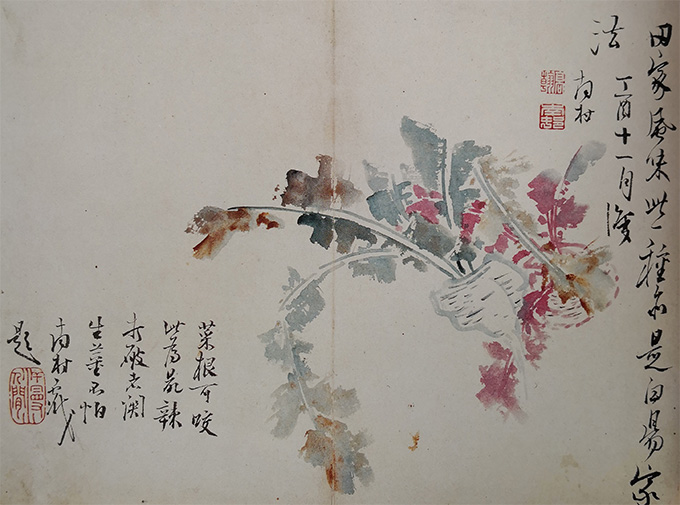 田家風味此一種亦是白昜家
法
丁酉十一月
南村
菜根可咬
此爲最辣
打破關
生薑不怕
南村戲
題